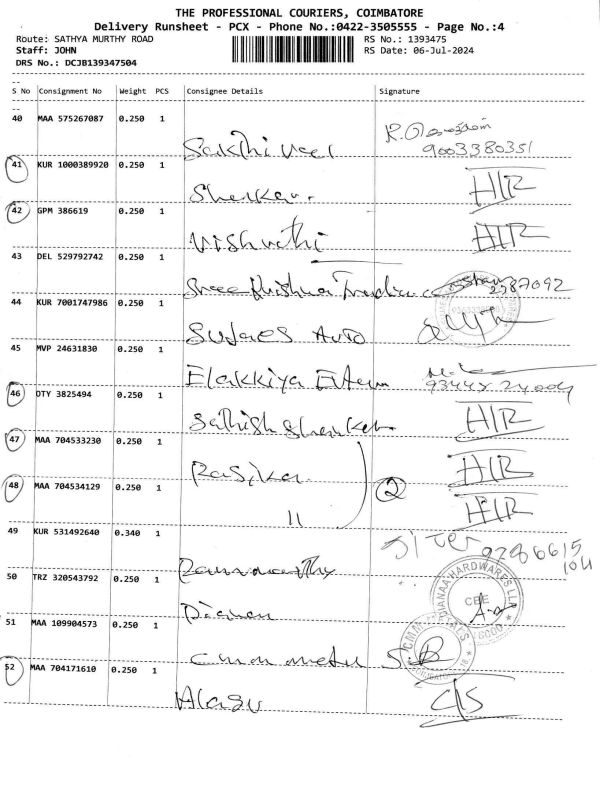 THE PROFESSIONAL COURIERS, COIMBATORE
Delivery Runsheet - PCX - Phone No.:0422-3505555 - Page No.:4
Route: SATHYA MURTHY ROAD RS No.: 1393475
Staff: JOHN RS Date: 06-Jul-2024
DRS No.: DCJB139347504
--
S No Consignment No Weight PCS Consignee Details Signature
--
40 MAA 575267087 0.250 1
Sakthi veel 9003380351
41 KUR 1000389920 0.250 1
Shekar. HIR
42 GPM 386619 0.250 1
Vishvathi HIR
43 DEL 529792742 0.250 1
Sree Krishna Trading co 2587092
44 KUR 7001747986 0.250 1
Sujaes Auto
45 MVP 24631830 0.250 1
Elakkiya
46 DTY 3825494 0.250 1
Sathish Shankar HIR
47 MAA 704533230 0.250 1
Rasika HIR
48 MAA 704534129 0.250 1 2
11 HIR
49 KUR 531492640 0.340 1
Sister 97866615
104
50 TRZ 320543792 0.250 1
HARDWARES LLP
CBE
51 MAA 109904573 0.250 1
Cmm metal
52 MAA 704171610 0.250 1
Alagu C/S